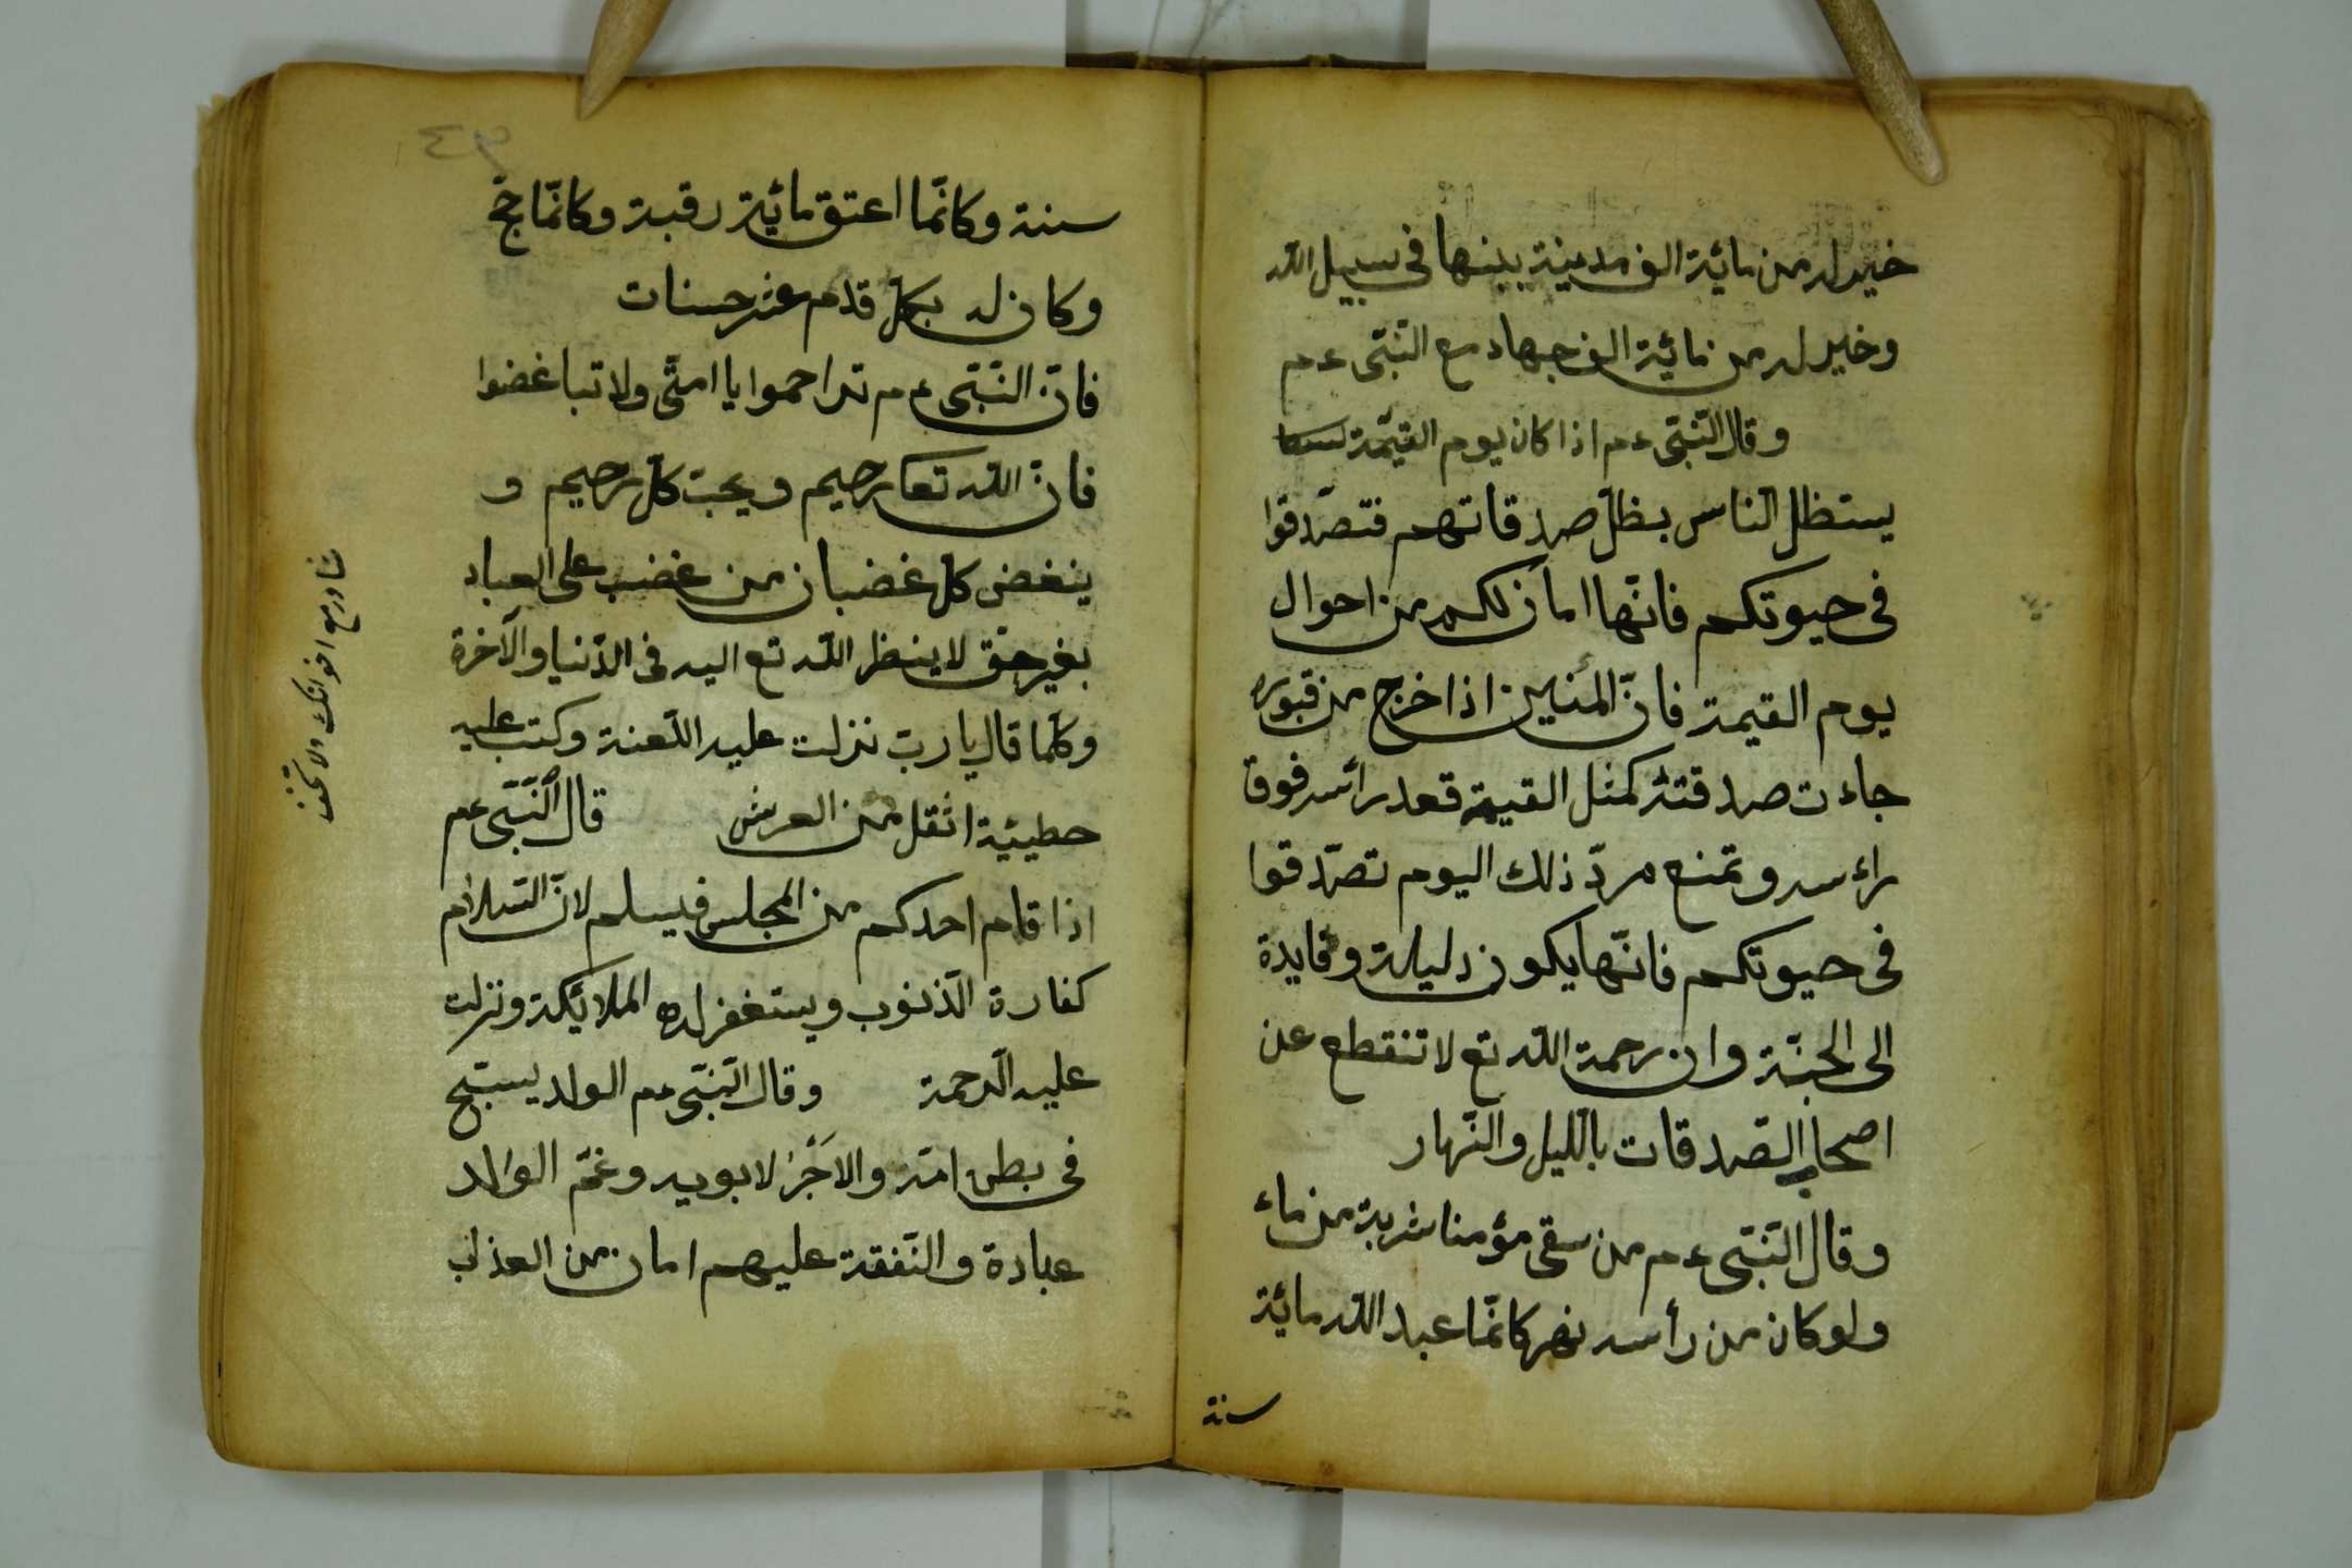 خير له من مائة الف مدينة يبنيها فى سبيل الله
وخير له من مائة الف جهاد مع النّبىّ عم
وقال النّبىّ عم اذا كان يوم القيمة
يستظل الناس بظلّ صدقاتهم فتصدّقوا
فى حيوتكم فانّها امان لكم من احوال
يوم القيمة فانّ اذا خرج من قبوره
جاءت صدقته كمثل القيمة قعد رأسه فوق
راءسه وتمنع مردّ ذلك اليوم تصدّقوا
فى حيوتكم فانّها يكون دليلة وقايدة
الى الجنّة وان رحمة الله تع لا تنقطع عن
اصحاب الصدقات بالّليل والنّهار
وقال النّبىّ عم من سقى مؤمنا شربة من ماء
ولو كان من رأسه نهر كانّما عبد الله مائة
سنة
سنة وكانّما اعتق مائة رقبة وكانّما حجّ
وكان له بكلّ قدم عشر حسنات
فانّ النّبىّ عم تراحموا يا امتّى ولا تباغضوا
فانّ الله تعا رحيم ويحبّ كلّ رحيم و
ينغض كل غضبان من غضب على العباد
بغير حق لا ينظر الله تع اليه فى الدّنيا والآخرة
وكلّما قال يا ربّ نزلت عليه اللّعنة وكتب عليه
حطيئة اثقل من العرش قال النّبىّ عم
اذا قام احدكم من المجلس فيسلم لانّ السّلام
كفارة الّذنوب ويستغفر له الملائكة ونزلت
عليه الّرحمة وقال النّبىّ عم الولد يسبّح
فى بطن امّه والاجر لابويه وغمّ الوالد
عبادة والنّفقة عليهم امان من العذاب
شاور مع اخوانك ولا تخف